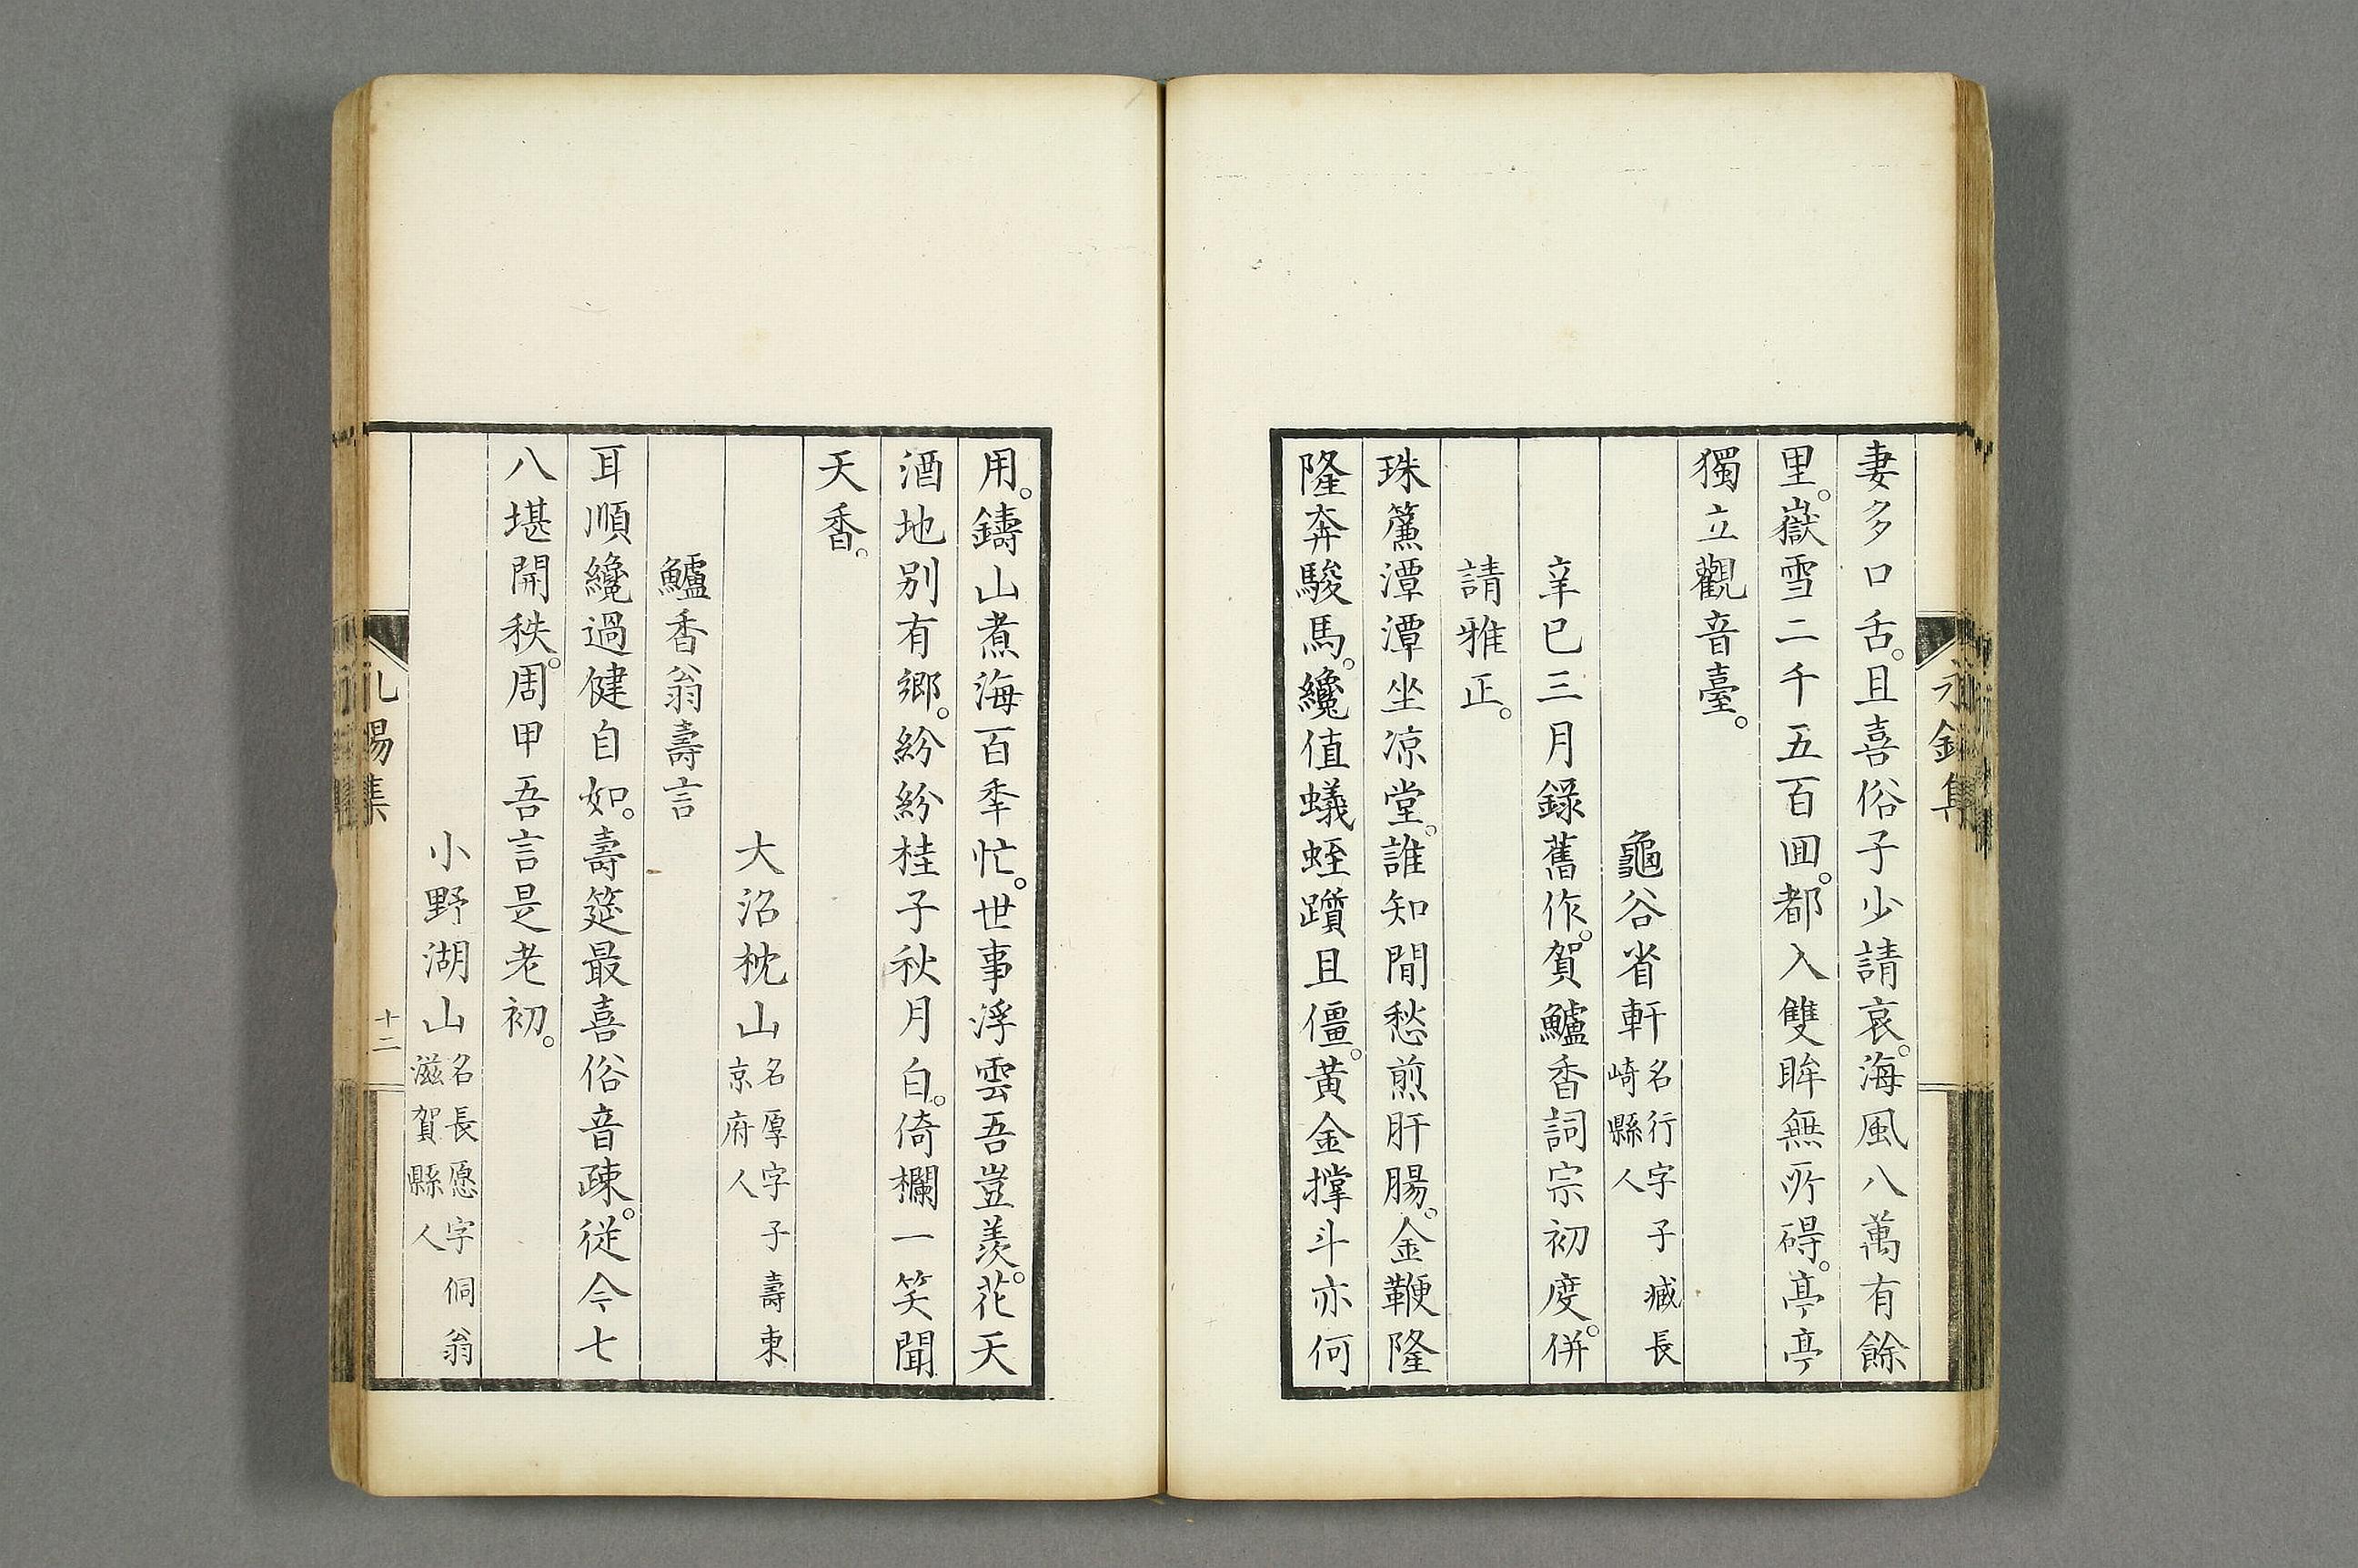 妻多口舌。且喜俗子少請哀。海風八萬有餘
里。嶽雪二千五百囬。都入雙眸無所碍。亭亭
獨立觀音臺。
龜谷省軒名行字子臧長崎縣人
辛巳三月錄舊作。賀鱸香詞宗初度。併
請雅正。
珠簾潭潭坐凉堂。誰知閒愁煎肝腸。金鞭隆
隆奔駿馬。纔值蟻蛭躓且僵。黃金撑斗亦何
用。鑄山煮海百季忙。世事浮雲吾豈羨。花天
酒地別有鄉。紛紛桂子秋月白。倚欄一笑聞
天香。
大沼枕山名厚字子壽東京府人
鱸香翁壽言
耳順纔過健自如。壽筵最喜俗音疎。從今七
八堪開秩。周甲吾言是老初。
小野湖山名長愿字侗翁滋賀縣人
十二